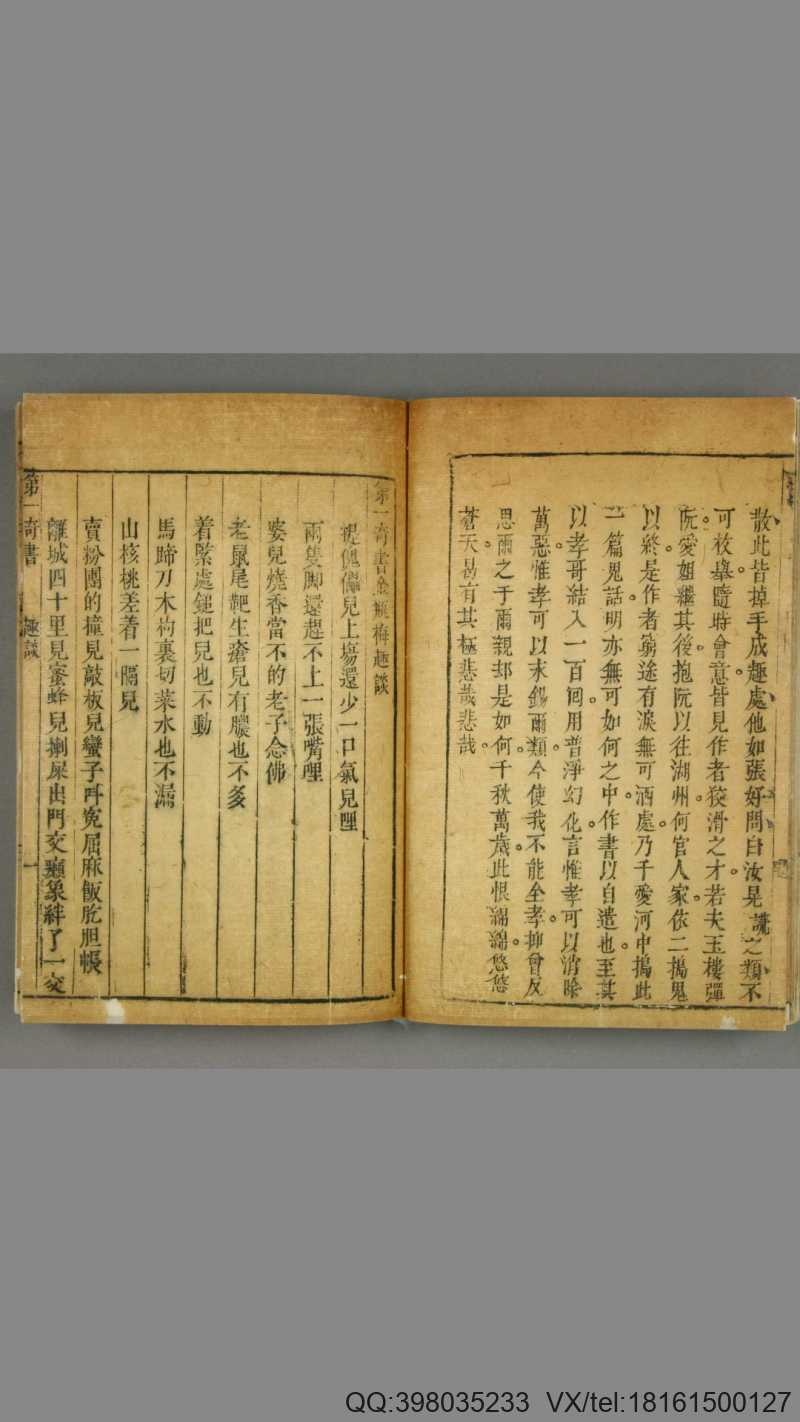 散此皆掉手成趣處他如張好問白汝晃謊之類不
可枚舉。隨時會意皆見作者狡滑之才若夫玉樓彈
阮。愛姐繼其後。抱阮以往湖州。何官人家。依二搗鬼
以終。是作者窮途有淚無可洒處。乃千愛河中搗此
一篇鬼話。明亦無可如何之中。作書以自遣也。至其
以孝哥結入一百囘。用普淨幻化。言惟孝可以消除
萬惡。惟孝可以永錫爾類。今使我不能全孝。抑曾反
思爾之于爾親却是如何。千秋萬歲。此恨綿綿。悠悠
蒼天。曷有其極悲哉悲哉。
第一奇書金瓶梅趣談
傀儡兒上場還少一口氣兒哩
兩隻脚還趕不上一張嘴哩
婆兒燒香當不的老子念佛
老鼠尾靶生瘡兒有膿也不多
着緊處鎚把兒也不動
馬蹄刀木杓裏切菜水也不漏
山核桃差着一隔兒
賣粉團的撞見敲板兒蠻子叫寃屈麻飯肐胆帳
離城四十里見蜜蜂兒揦屎出門交癩象絆了一交
第一奇書 趣談 一
QQ:398035233 VX/tel:18161500127